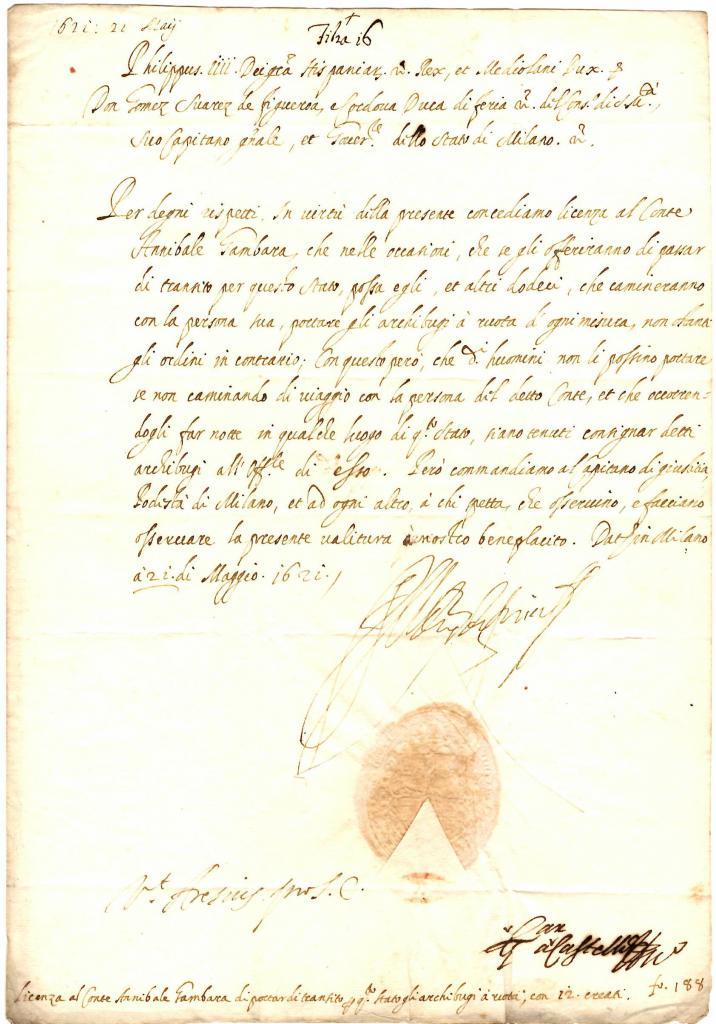 1621: 21 Maij
Filza 16
Philippus. IIII. Dei gr̃a Hispaniar. &. Rex, et Mediolani Dux. &
Don Gomez Suarez de figueroa, e Cordova Duca di feria &. del Cons.º di Stato,
Suo Capitano gñale, et Gover.re dello Stato di Milano. &.
Per degni rispetti. In virtù della presente concediamo licenza al Conte
Annibale Gambara, che nelle occasioni, che se gli offeriranno di passar
di transito per questo Stato, possa egli, et altri dodeci, che camineranno
con la persona sua, portare gli archibugi à ruota d'ogni misura, non ostan.ti
gli ordini in contrario; Con questo però, che d.i huomini non li possino portare
se non caminando di viaggio con la persona del detto Conte, et che occorren-
dogli far notte in qualche luogo di q.to Stato, siano tenuti consignar detti
archibugi all'Off.le di esso. Però commandiamo al Capitano di giustitia,
Podestà di Milano, et ad ogni altro, à chi spetta, che osservino, e facciano
osservare la presente valitura à nostro beneplacito. Dat. in Milano
à 21. di Maggio. 1621.
V.t Aresius
Castell
licenza al Conte Annibale Gambara di portar di transito p q.to Stato gli archibugi à ruota, con 12. creati. fo. 188